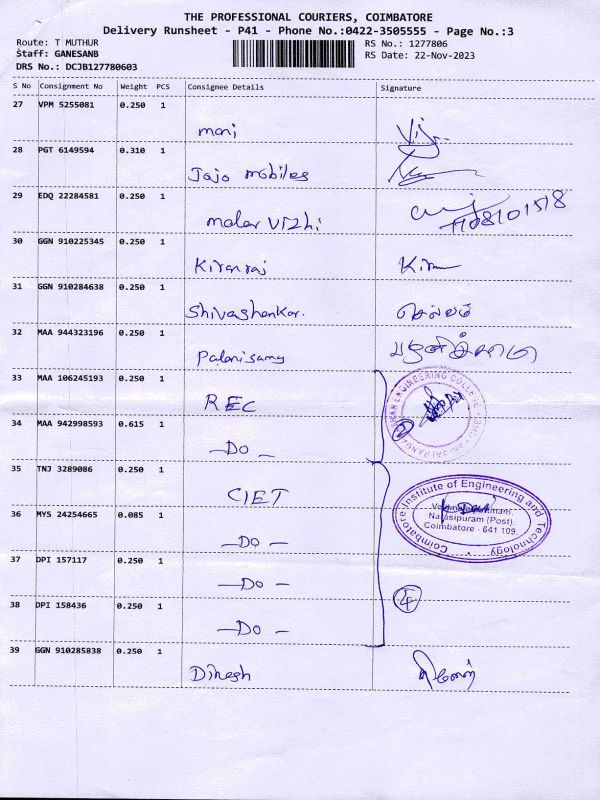 THE PROFESSIONAL COURIERS, COIMBATORE
Delivery Runsheet - P41 - Phone No.:0422-3505555 - Page No.:3
Route: T MUTHUR
RS No.: 1277806
Staff: GANESANB
RS Date: 22-Nov-2023
DRS No.: DCJB127780603
S No Consignment No Weight PCS Consignee Details Signature
27 VPM 5255081 0.250 1
mani
28 PGT 6149594 0.310 1
Jojo mobiles
29 EDQ 22284581 0.250 1
malar vizhi
30 GGN 910225345 0.250 1
Kiranraj
31 GGN 910284638 0.250 1
Shivashankar. செல்வம்
32 MAA 944323196 0.250 1
Palanisamy
33 MAA 106245193 0.250 1
REC
34 MAA 942998593 0.615 1
2
- Do -
35 TNJ 3289086 0.250 1
CIET
Coimbatore Institute of Engineering and Technology
Narasipuram (Post),
Coimbatore - 641 109.
36 MYS 24254665 0.085 1
- Do -
37 DPI 157117 0.250 1
- Do -
38 DPI 158436 0.250 1
4
- Do -
39 GGN 910285838 0.250 1
Dinesh தினேஷ்